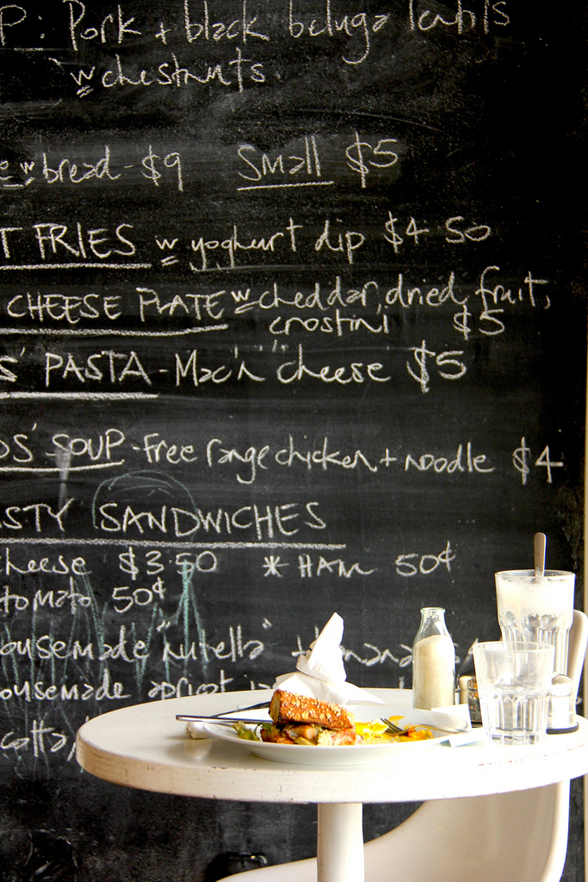 P: Pork + black beluga lentils
w chestnuts
e w bread - $9 Small $5
T FRIES w yoghurt dip $4 50
CHEESE PLATE w cheddar, dried fruit,
crostini $5
S' PASTA - Mac 'n' cheese $5
DS' SOUP - Free range chicken + noodle $4
ASTY SANDWICHES
cheese $3.50 * HAM 50¢
tomato 50¢
ousemade "nutella" +
ousemade apricot
cotta,